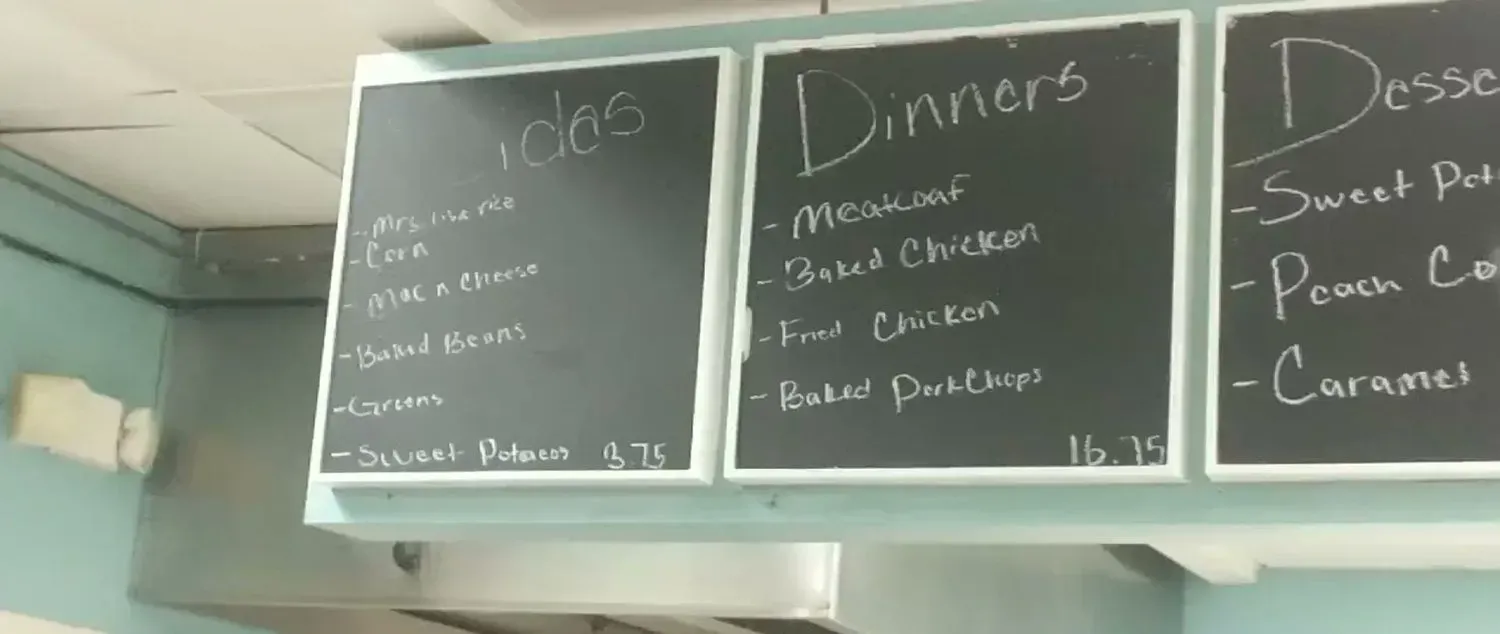 ides
- Mrs lisa rice
- Corn
- Mac n Cheese
- Baked Beans
- Greens
- Sweet Potatoes 3.75
Dinners
- Meatloaf
- Baked Chicken
- Fried Chicken
- Baked PorkChops
16.75
Desse
- Sweet Pot
- Peach Co
- Caramel